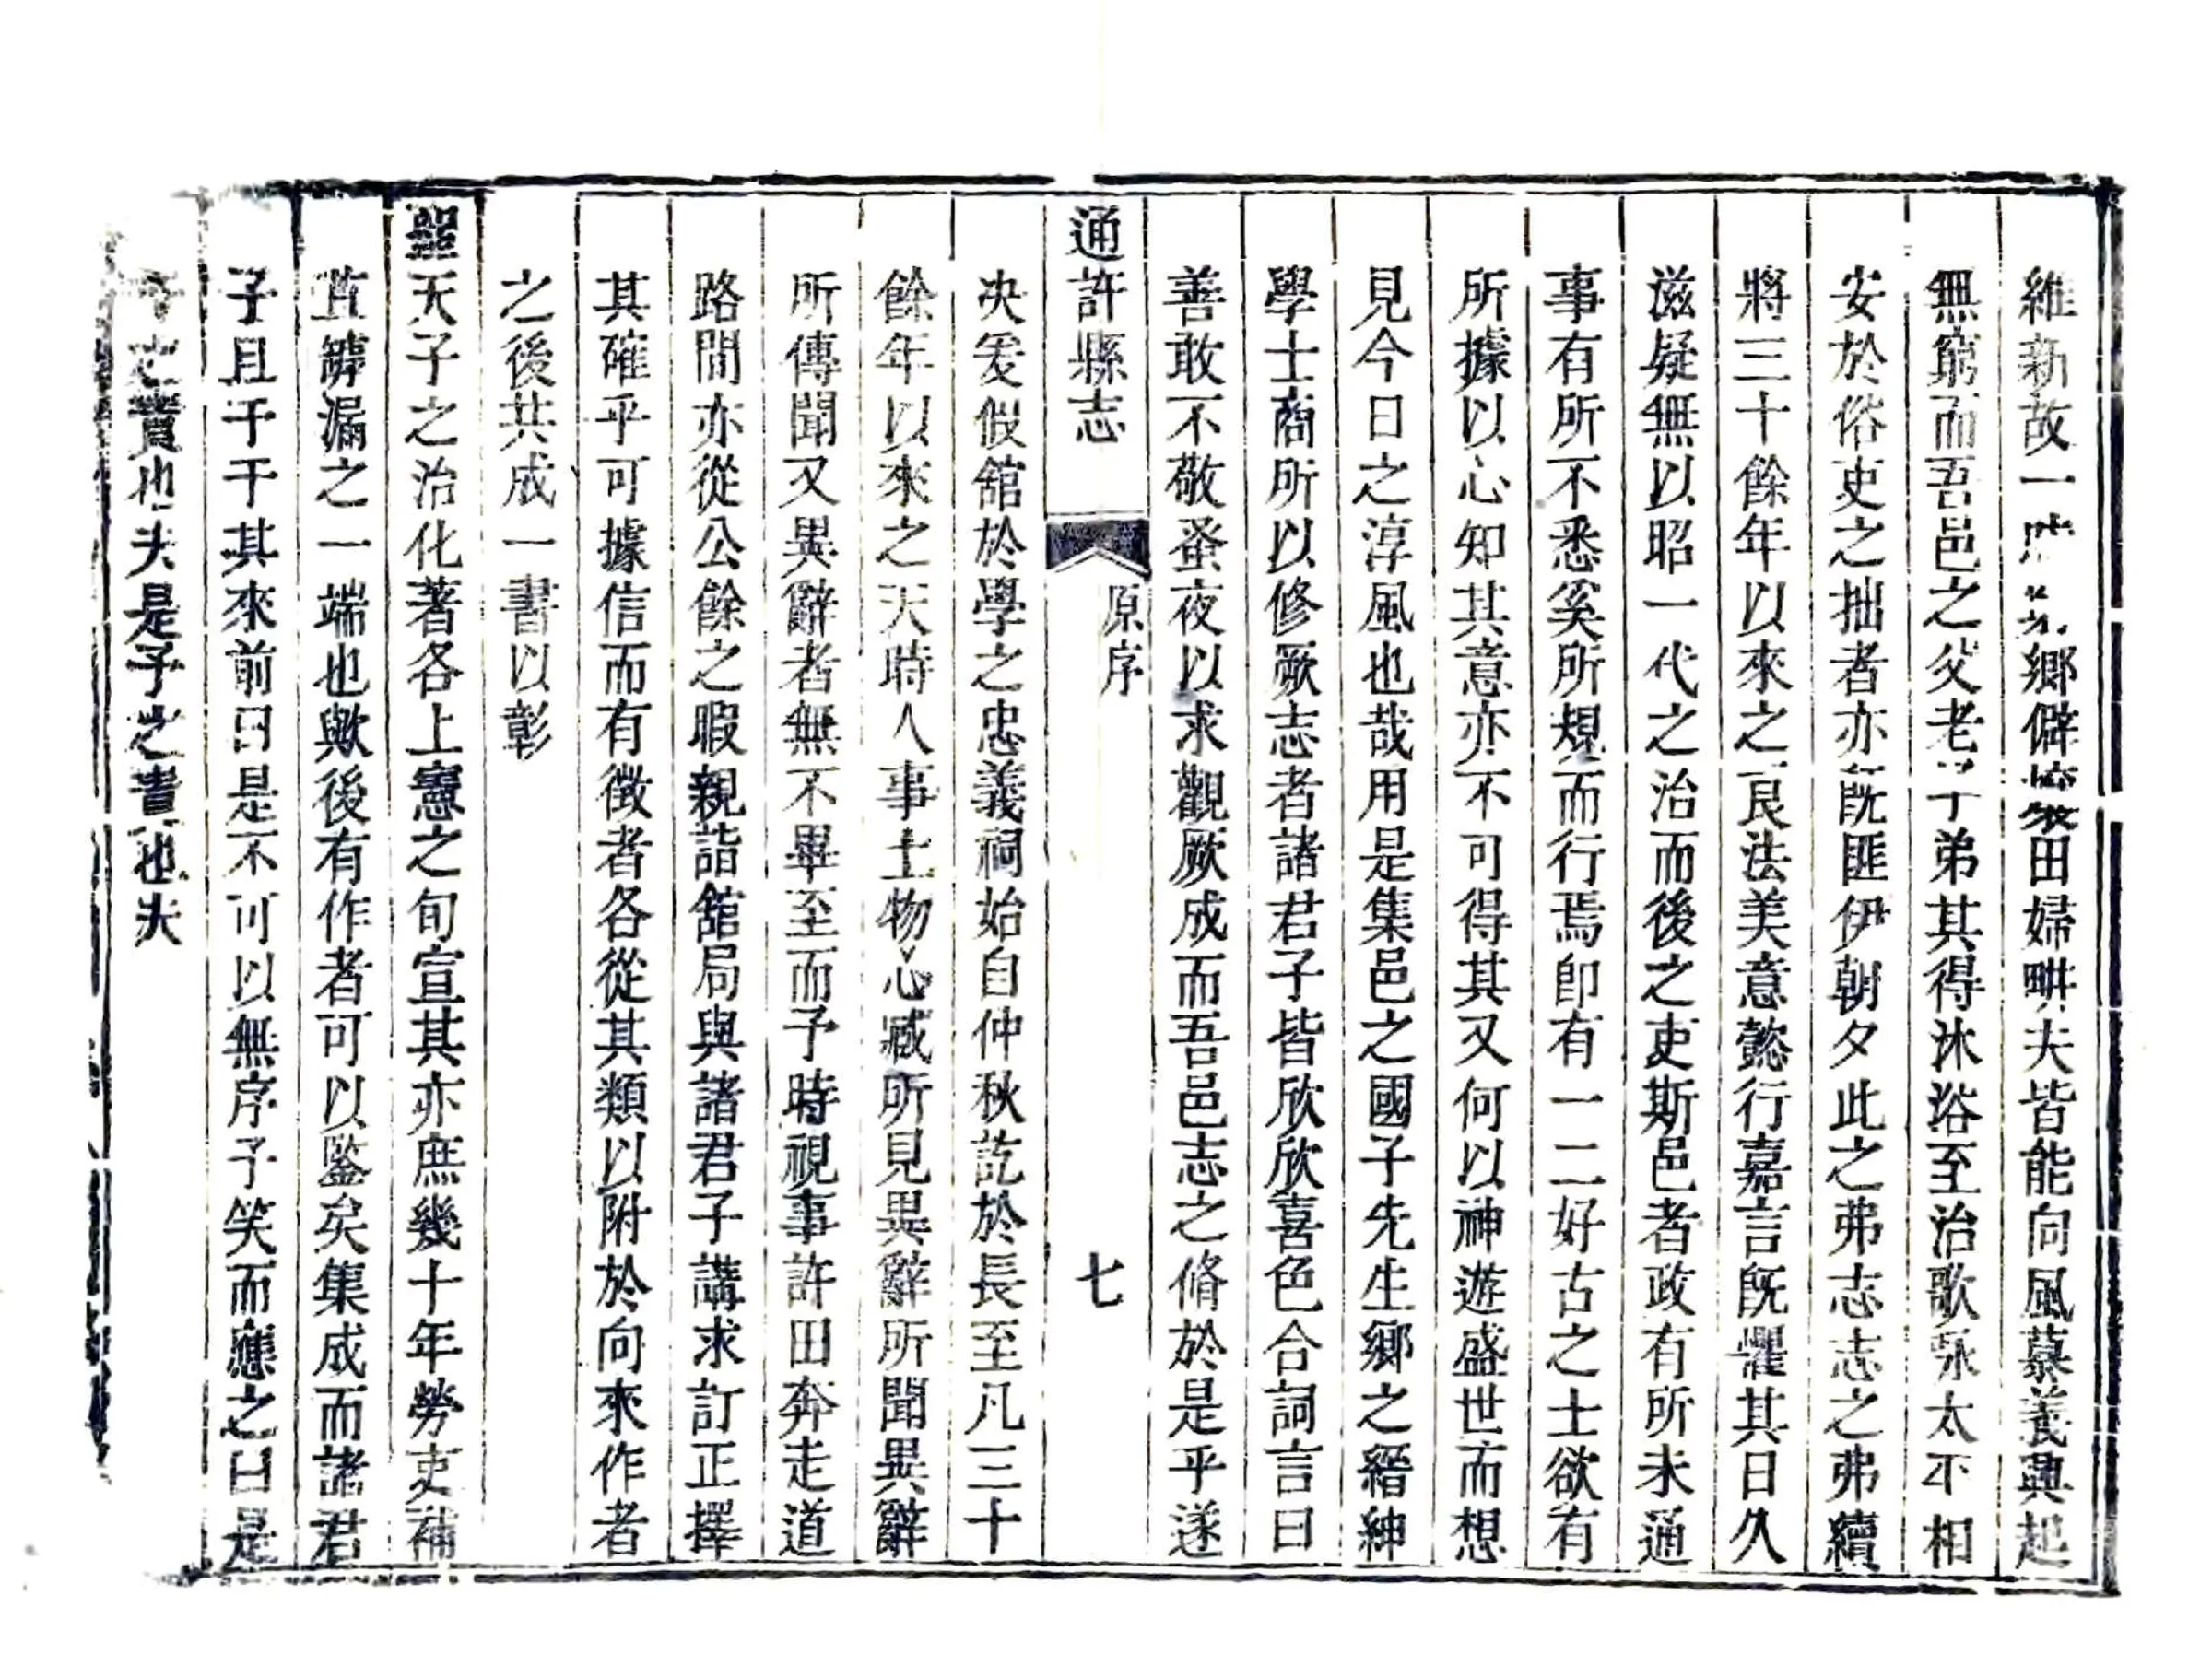 維新故一時鄉僻田婦畊夫皆能向風慕義興起
無窮而吾邑之父老子弟其得沐浴至治歌永太不相
安於俗吏之拙者亦旣匪伊朝夕此之弗志志之弗續
將三十餘年以來之良法美意懿行嘉言旣懼其日久
滋疑無以昭一代之治而後之吏斯邑者政有所未通
事有所不悉奚所規而行焉卽有一二好古之士欲有
所據以心知其意亦不可得其又何以神遊盛世而想
見今日之淳風也哉用是集邑之國子先生鄉之縉紳
學士商所以修厥志者諸君子皆欣欣喜色合詞言曰
善敢不敬蚤夜以求觀厥成而吾邑志之脩於是乎遂
通許縣志 原序 七
决爰假舘於學之忠義祠始自仲秋訖於長至凡三十
餘年以來之天時人事土物心臧所見異辭所聞異辭
所傳聞又異辭者無不畢至而予時視事許田奔走道
路間亦從公餘之暇親詣舘局與諸君子講求訂正擇
其確乎可據信而有徵者各從其類以附於向來作者
之後共成一書以彰
聖天子之治化著各上憲之旬宣其亦庶幾十年勞吏補
苴罅漏之一端也歟後有作者可以鑒矣集成而諸君
子且于于其來前曰是不可以無序予笑而應之曰是
之責也夫是予之責也夫